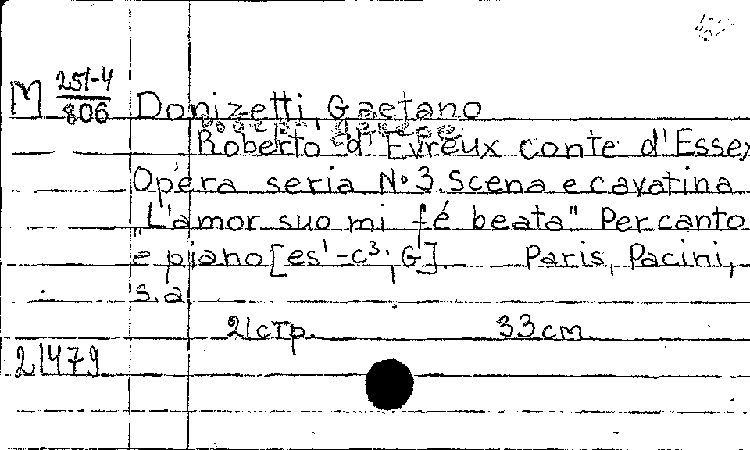 M 251-4/806 Donizetti, Gaetano
Roberto d'Evreux conte d'Essex
Opéra seria No 3. Scena e cavatina
"L'amor suo mi fé beata" Per canto
e piano [es¹-c³; G]. Paris, Pacini,
s.a.
21 стр. 33 cm
21479